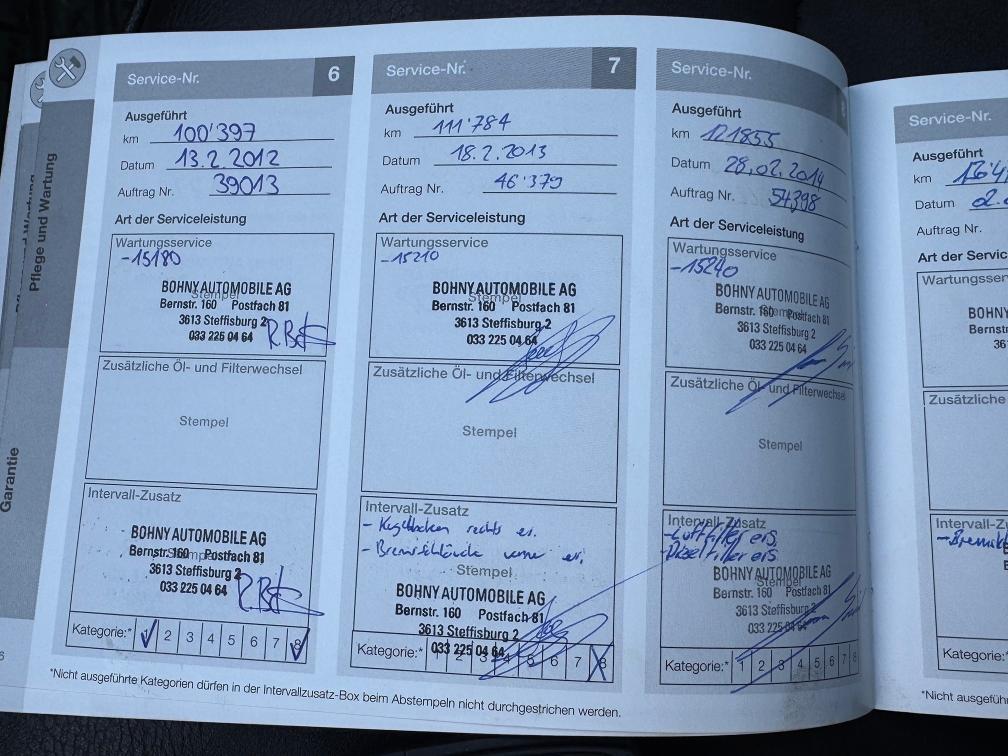 Pflege und Wartung
Garantie
Service-Nr. 6
Ausgeführt
km 100'397
Datum 13.2.2012
Auftrag Nr. 39013
Art der Serviceleistung
Wartungsservice
-15180
Stempel
BOHNY AUTOMOBILE AG
Bernstr. 160 Postfach 81
3613 Steffisburg 2
033 225 04 64
Zusätzliche Öl- und Filterwechsel
Stempel
Intervall-Zusatz
Stempel
BOHNY AUTOMOBILE AG
Bernstr. 160 Postfach 81
3613 Steffisburg 2
033 225 04 64
Kategorie:* 2 3 4 5 6 7 8
Service-Nr. 7
Ausgeführt
km 111'784
Datum 18.2.2013
Auftrag Nr. 46'379
Art der Serviceleistung
Wartungsservice
-15210
Stempel
BOHNY AUTOMOBILE AG
Bernstr. 160 Postfach 81
3613 Steffisburg 2
033 225 04 64
Zusätzliche Öl- und Filterwechsel
Stempel
Intervall-Zusatz
- rechts er.
- Bremsschläuche vorne er.
Stempel
BOHNY AUTOMOBILE AG
Bernstr. 160 Postfach 81
3613 Steffisburg 2
033 225 04 64
Kategorie:* 1 2 3 4 5 6 7 8
Service-Nr.
Ausgeführt
km 121855
Datum 28.02.2014
Auftrag Nr. 54398
Art der Serviceleistung
Wartungsservice
-15240
Stempel
BOHNY AUTOMOBILE AG
Bernstr. 160 Postfach 81
3613 Steffisburg 2
033 225 04 64
Zusätzliche Öl- und Filterwechsel
Stempel
Intervall-Zusatz
-Luftfilter ers
-Dieselfilter ers
Stempel
BOHNY AUTOMOBILE AG
Bernstr. 160 Postfach 81
3613 Steffisburg 2
033 225 04 64
Kategorie:* 1 2 3 4 5 6 7 8
*Nicht ausgeführte Kategorien dürfen in der Intervallzusatz-Box beim Abstempeln nicht durchgestrichen werden.
Service-Nr.
Ausgeführt
km
Datum
Auftrag Nr.
Art der Servic
Wartungsserv
BOHN
Be
36
Zusätzliche
Intervall-Z
Kategorie:*
*Nicht ausgeführ